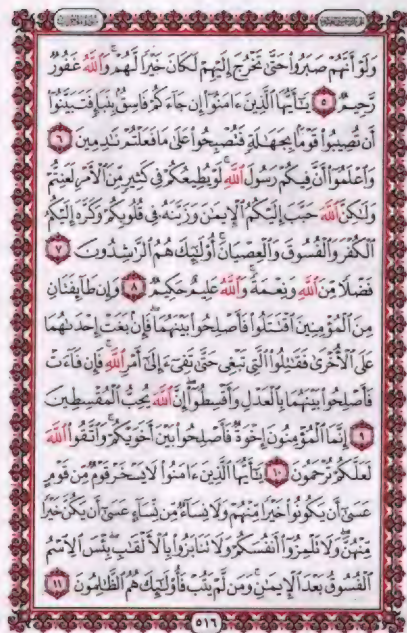 وَلَوْ أَنَّهُمْ صَبَرُوا۟ حَتَّىٰ تَخْرُجَ إِلَيْهِمْ لَكَانَ خَيْرًا لَّهُمْ ۚ وَٱللَّهُ غَفُورٌ
رَّحِيمٌ ٥ يَـٰٓأَيُّهَا ٱلَّذِينَ ءَامَنُوٓا۟ إِن جَآءَكُمْ فَاسِقٌۢ بِنَبَإٍ فَتَبَيَّنُوٓا۟
أَن تُصِيبُوا۟ قَوْمًۢا بِجَهَـٰلَةٍ فَتُصْبِحُوا۟ عَلَىٰ مَا فَعَلْتُمْ نَـٰدِمِينَ ٦
وَٱعْلَمُوٓا۟ أَنَّ فِيكُمْ رَسُولَ ٱللَّهِ ۚ لَوْ يُطِيعُكُمْ فِى كَثِيرٍ مِّنَ ٱلْأَمْرِ لَعَنِتُّمْ
وَلَـٰكِنَّ ٱللَّهَ حَبَّبَ إِلَيْكُمُ ٱلْإِيمَـٰنَ وَزَيَّنَهُۥ فِى قُلُوبِكُمْ وَكَرَّهَ إِلَيْكُمُ
ٱلْكُفْرَ وَٱلْفُسُوقَ وَٱلْعِصْيَانَ ۚ أُو۟لَـٰٓئِكَ هُمُ ٱلرَّٰشِدُونَ ٧
فَضْلًا مِّنَ ٱللَّهِ وَنِعْمَةً ۚ وَٱللَّهُ عَلِيمٌ حَكِيمٌ ٨ وَإِن طَآئِفَتَانِ
مِنَ ٱلْمُؤْمِنِينَ ٱقْتَتَلُوا۟ فَأَصْلِحُوا۟ بَيْنَهُمَا ۖ فَإِنۢ بَغَتْ إِحْدَىٰهُمَا
عَلَى ٱلْأُخْرَىٰ فَقَـٰتِلُوا۟ ٱلَّتِى تَبْغِى حَتَّىٰ تَفِىٓءَ إِلَىٰٓ أَمْرِ ٱللَّهِ ۚ فَإِن فَآءَتْ
فَأَصْلِحُوا۟ بَيْنَهُمَا بِٱلْعَدْلِ وَأَقْسِطُوٓا۟ ۖ إِنَّ ٱللَّهَ يُحِبُّ ٱلْمُقْسِطِينَ
٩ إِنَّمَا ٱلْمُؤْمِنُونَ إِخْوَةٌ فَأَصْلِحُوا۟ بَيْنَ أَخَوَيْكُمْ ۚ وَٱتَّقُوا۟ ٱللَّهَ
لَعَلَّكُمْ تُرْحَمُونَ ١٠ يَـٰٓأَيُّهَا ٱلَّذِينَ ءَامَنُوا۟ لَا يَسْخَرْ قَوْمٌ مِّن قَوْمٍ
عَسَىٰٓ أَن يَكُونُوا۟ خَيْرًا مِّنْهُمْ وَلَا نِسَآءٌ مِّن نِّسَآءٍ عَسَىٰٓ أَن يَكُنَّ خَيْرًا
مِّنْهُنَّ ۖ وَلَا تَلْمِزُوٓا۟ أَنفُسَكُمْ وَلَا تَنَابَزُوا۟ بِٱلْأَلْقَـٰبِ ۖ بِئْسَ ٱلِٱسْمُ
ٱلْفُسُوقُ بَعْدَ ٱلْإِيمَـٰنِ ۚ وَمَن لَّمْ يَتُبْ فَأُو۟لَـٰٓئِكَ هُمُ ٱلظَّـٰلِمُونَ ١١
٥١٦